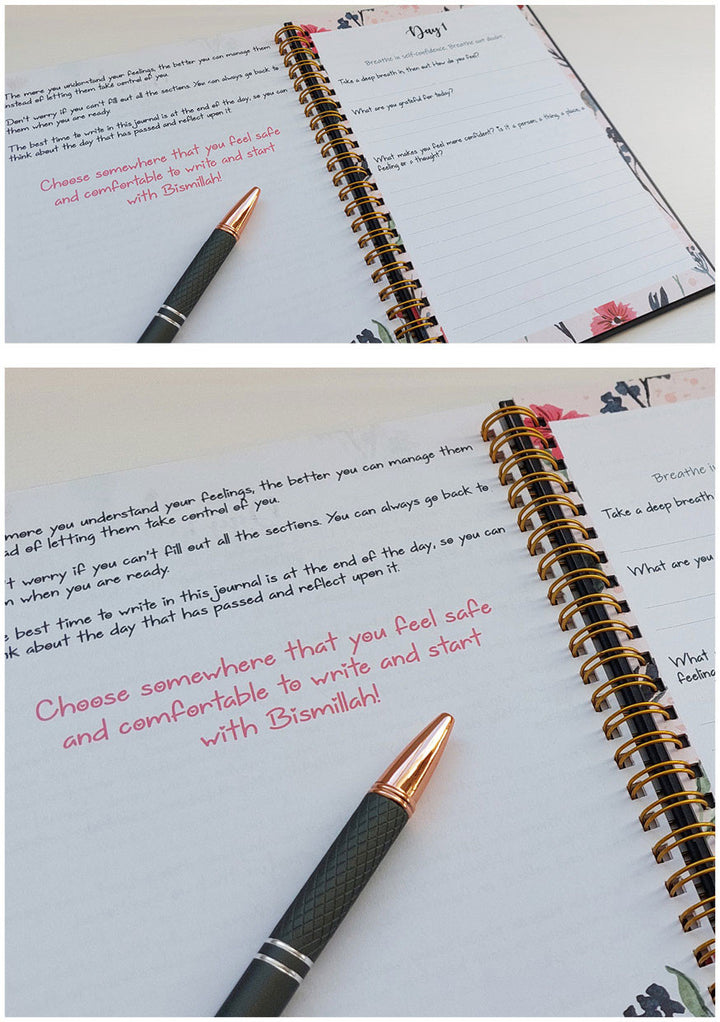 The more you understand your feelings, the better you can manage them
instead of letting them take control of you.
Don't worry if you can't fill out all the sections. You can always go back to
them when you are ready.
The best time to write in this journal is at the end of the day, so you can
think about the day that has passed and reflect upon it.
Choose somewhere that you feel safe
and comfortable to write and start
with Bismillah!
Day 1
Breathe in self-confidence. Breathe out doubt.
Take a deep breath in, then out. How do you feel?
What are you grateful for today?
What makes you feel more confident? Is it a person, a thing, a place, a
feeling or a thought?
more you understand your feelings, the better you can manage them
ad of letting them take control of you.
't worry if you can't fill out all the sections. You can always go back to
n when you are ready.
e best time to write in this journal is at the end of the day, so you can
nk about the day that has passed and reflect upon it.
Choose somewhere that you feel safe
and comfortable to write and start
with Bismillah!
Breathe i
Take a deep breath
What are you
What
feeling